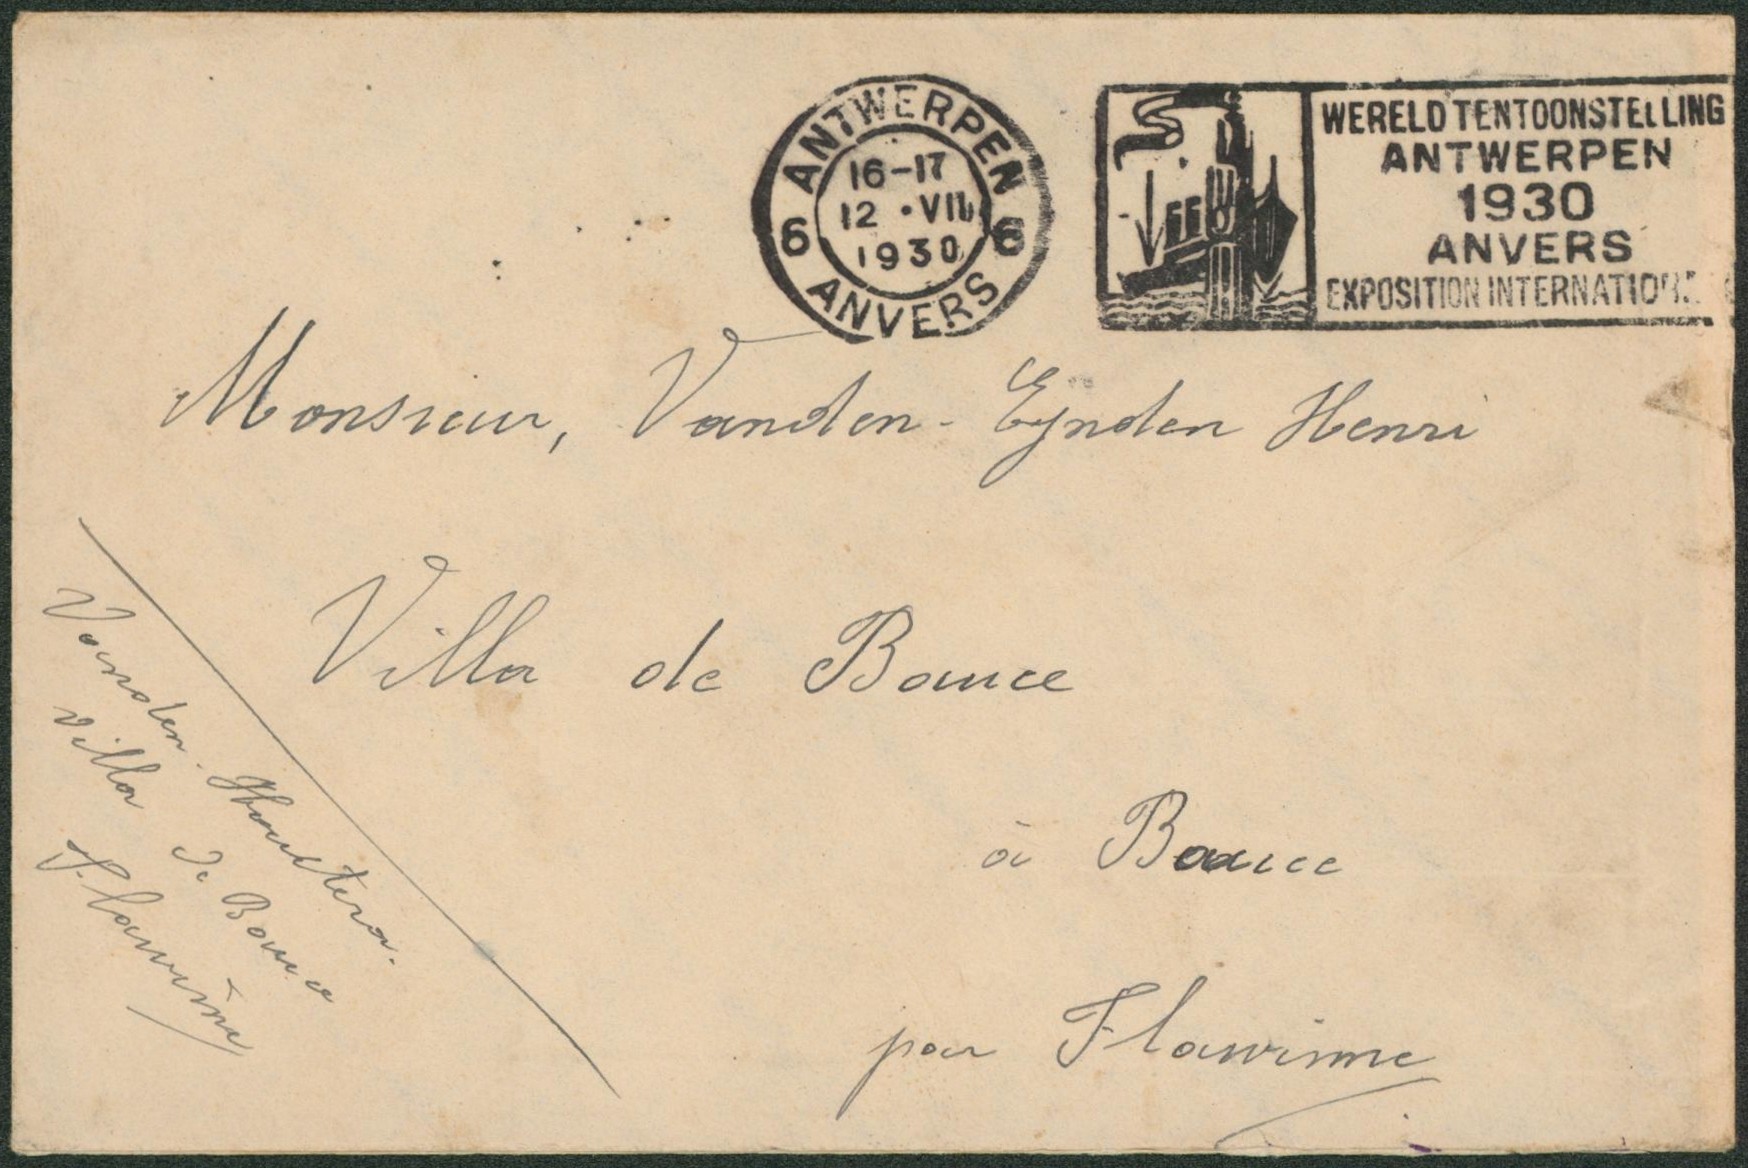 ANTWERPEN
16-17
12 · VII
1930
6 6
ANVERS
WERELDTENTOONSTELLING
ANTWERPEN
1930
ANVERS
EXPOSITION INTERNATIO
Monsieur, Vanden-Eynden Henri
Villa de Bauce
à Bauce
par Flawinne
Vanden
Villa de Bauce
Flawinne